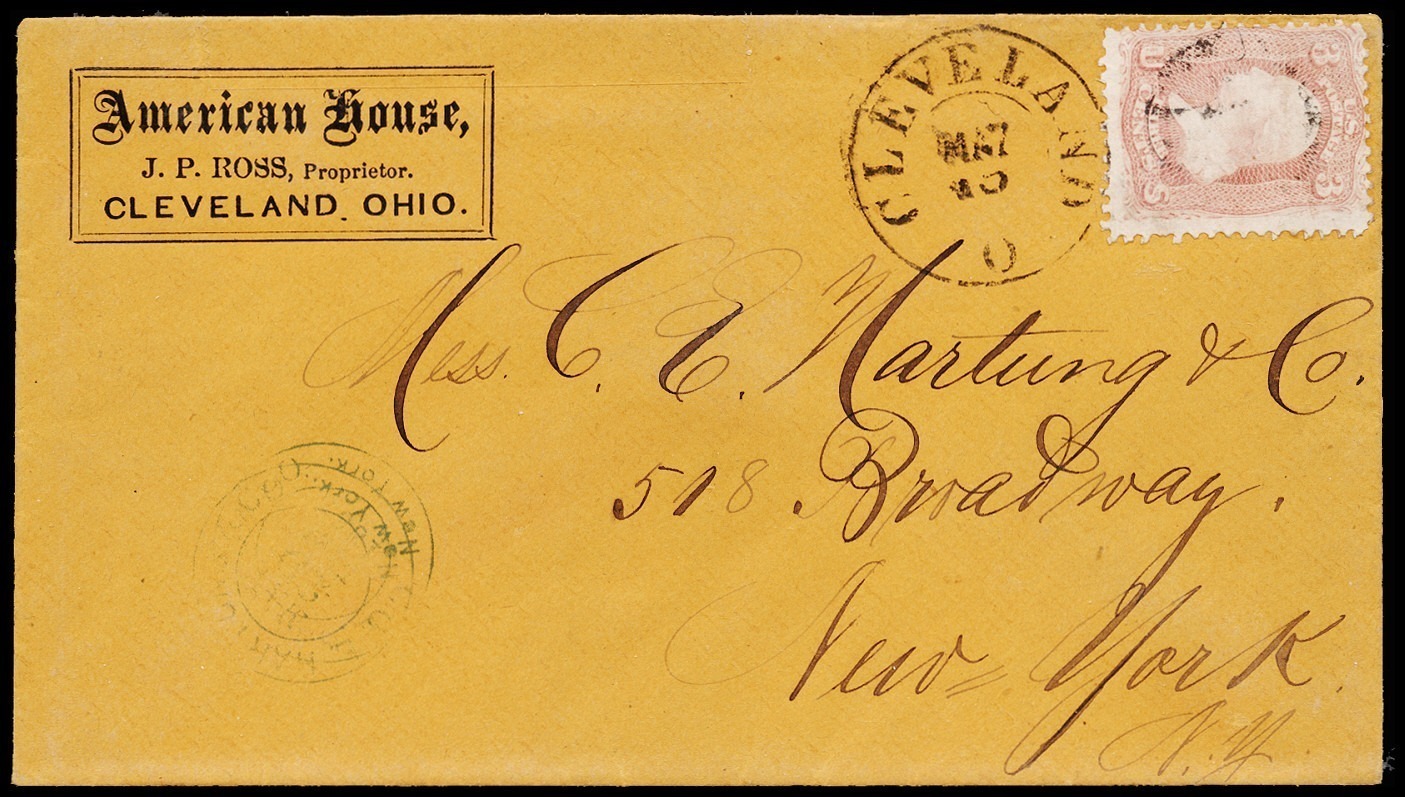 American House,
J. P. ROSS, Proprietor.
CLEVELAND, OHIO.
CLEVELAND O
MAY
U 3
S 3
Mess. C. E. Hartung & Co.
518 Broadway.
New York
N.Y.
New York.
New York.